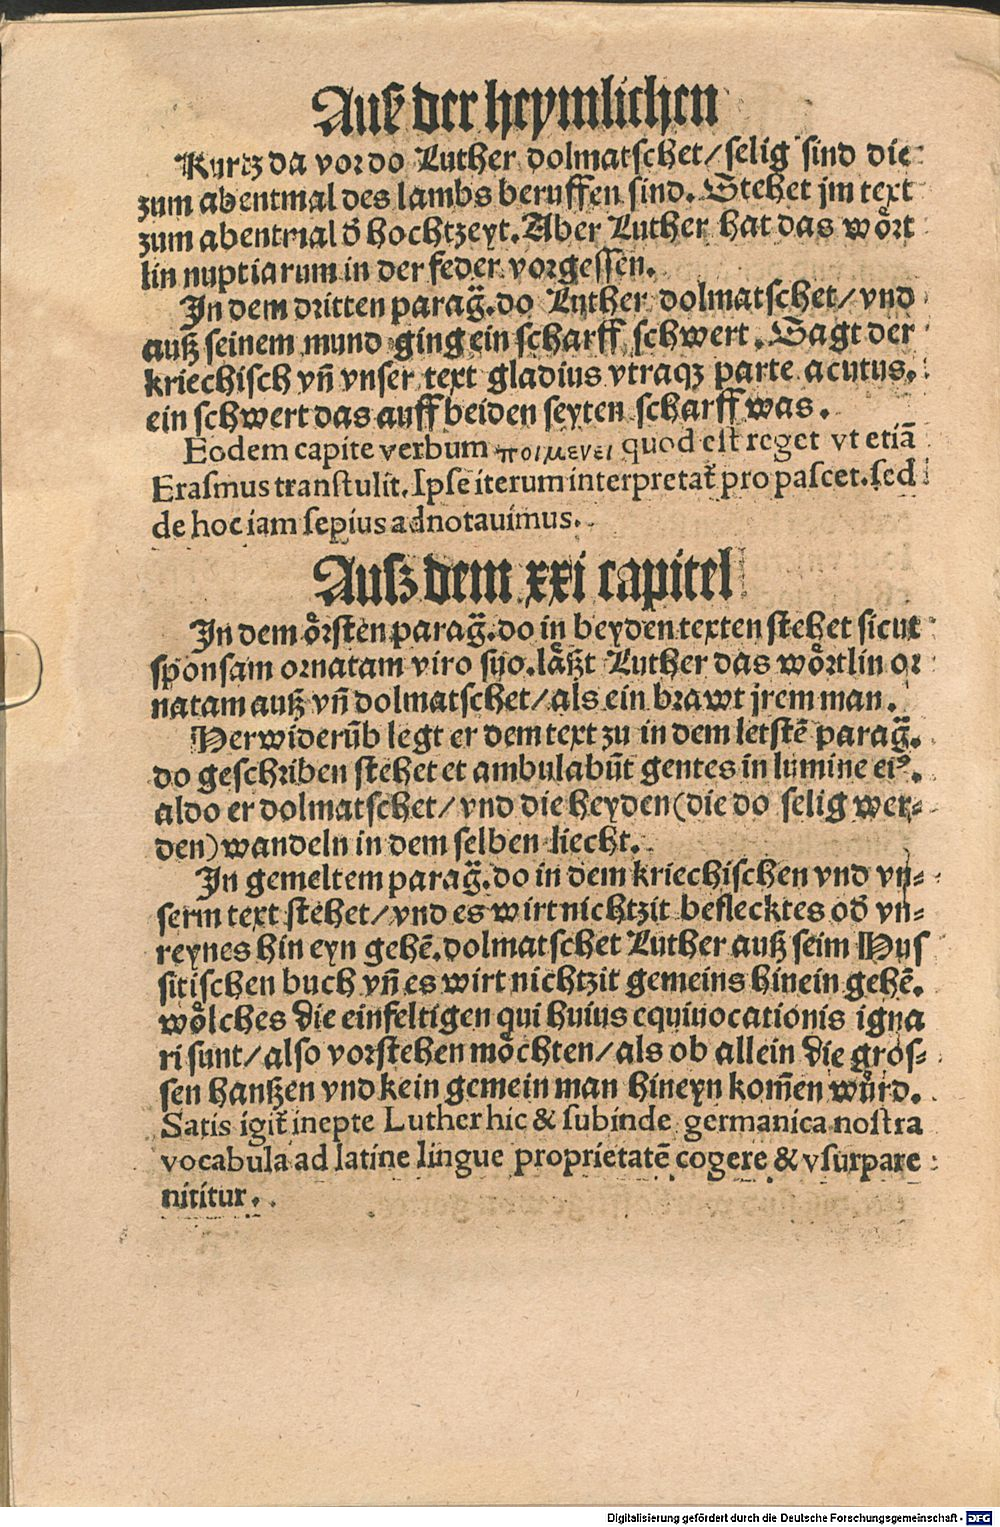 Auß der heymlichen
Kurtz da vor do Luther dolmatschet/selig sind die
zum abentmal des lambs beruffen sind. Stehet jm text
zum abentmal d̄ hochtzeyt. Aber Luther hat das wört
lin nuptiarum in der feder vorgessen.
In dem dritten parag̃. do Luther dolmatschet/vnd
auß seinem mund ging ein scharff schwert. Sagt der
kriechisch vn̄ vnser text gladius vtraqꝫ parte acutus.
ein schwert das auff beiden seyten scharff was.
Eodem capite verbum ποιμενει quod est reget vt etiā
Erasmus transtulit. Ipse iterum interpretat̄ pro pascet. sed
de hoc iam sepius adnotauimus.
Auß dem xxi capitel
In dem örsten parag̃. do in beyden texten stehet sicut
sponsam ornatam viro suo. läßt Luther das wörtlin or
natam auß vn̄ dolmatschet/als ein brawt jrem man.
Herwiderūb legt er dem text zu in dem letstē parag̃.
do geschriben stehet et ambulabūt gentes in lumine eiꝰ.
aldo er dolmatschet/vnd die heyden(die do selig wer⸗
den)wandeln in dem selben liecht.
In gemeltem parag̃. do in dem kriechischen vnd vn⸗
serm text stehet/vnd es wirt nichtzit beflecktes od̄ vn⸗
reynes hin eyn gehē. dolmatschet Luther auß seim Hus
sitischen buch vn̄ es wirt nichtzit gemeins hinein gehē.
wölches die einfeltigen qui huius equiuocationis igna
ri sunt/also vorstehen möchten/als ob allein die gros⸗
sen hanßen vnd kein gemein man hineyn kom̄en würd.
Satis igit̄ inepte Luther hic & subinde germanica nostra
vocabula ad latine lingue proprietatē cogere & vsurpare
nititur.
Digitalisierung gefördert durch die Deutsche Forschungsgemeinschaft - DFG